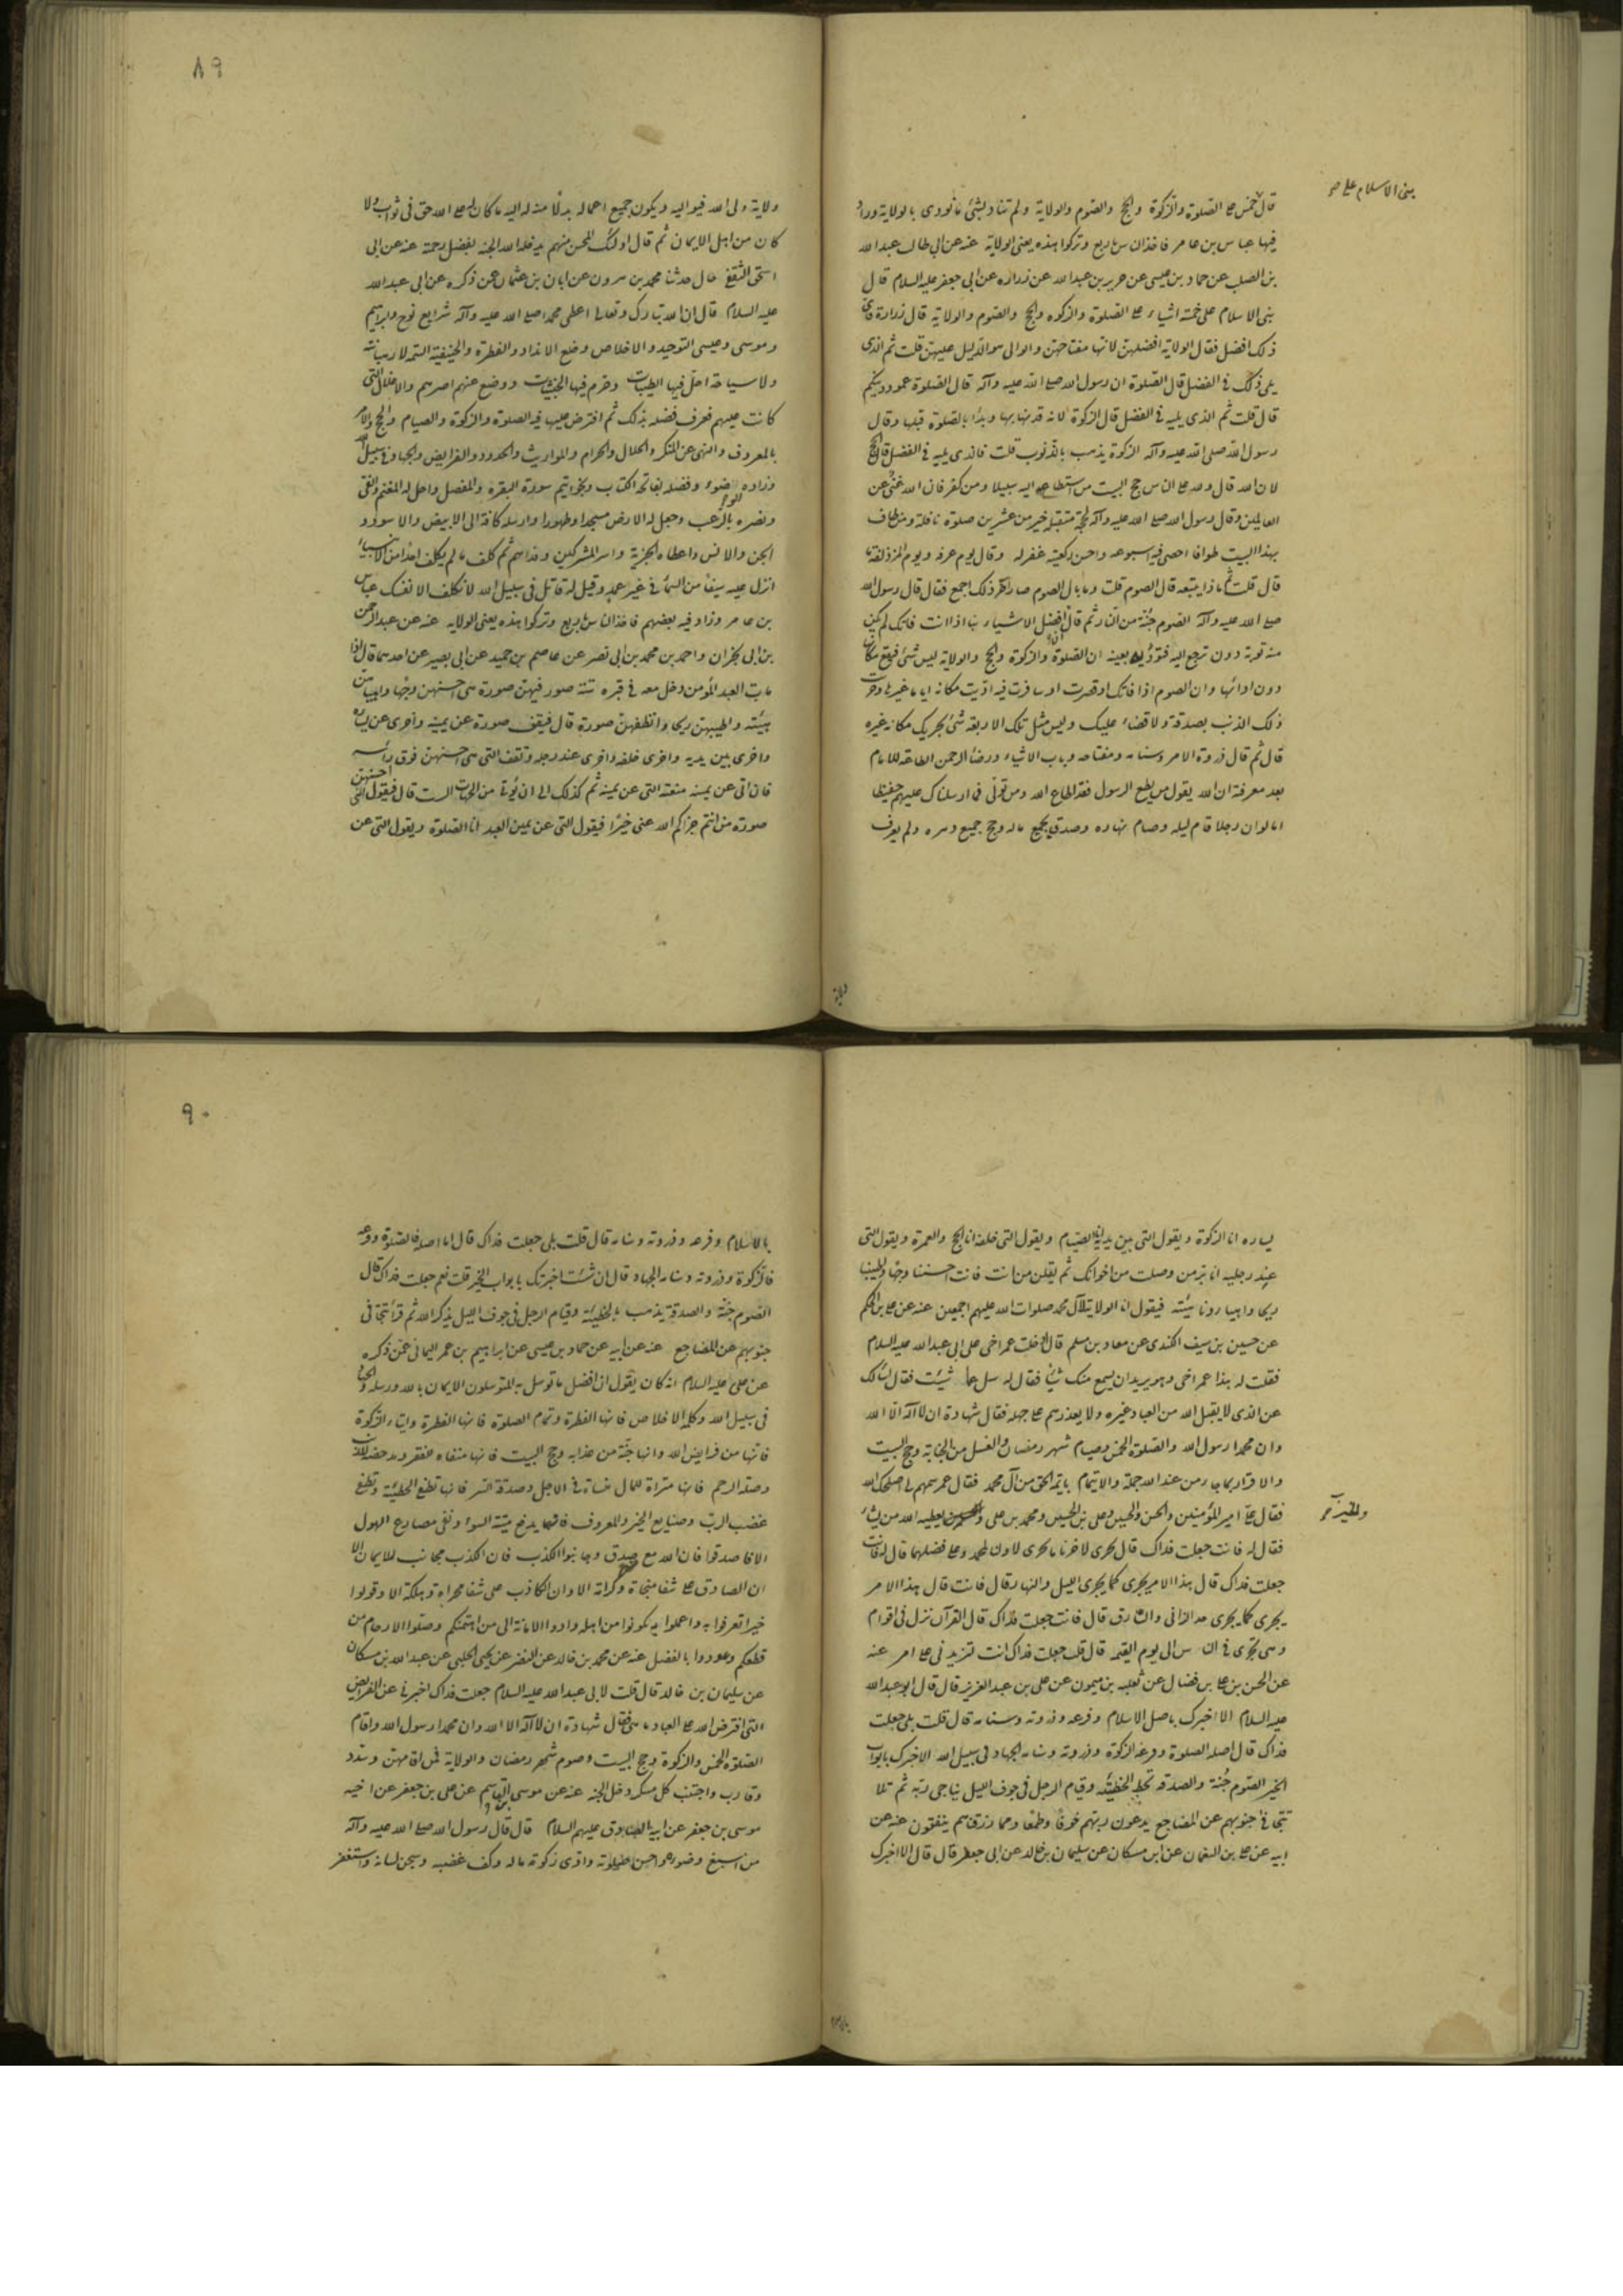 بنى الاسلام على صو
قال خمس على الصلوة والزكوة والحج والصوم والولاية ولم تناد بشئ ما نودى بالولاية وزاد
فيها عباس بن عامر فاخذ الناس باربع وتركوا هذه يعنى الولاية عنه عن ابى طالب عبدالله
بن الصلت عن حماد بن عيسى عن حريز بن عبدالله عن زراره عن ابى جعفر عليه السلام قال
بنى الاسلام على خمسة اشياء على الصلوة والزكوه والحج والصوم والولاية قال زرارة فاى
ذلك افضل فقال الولاية افضلهن لانها مفتاحهن والوالى هو الدليل عليهن قلت ثم الذى
يلى ذلك فى الفضل قال الصلوة ان رسول الله صلى الله عليه وآله قال الصلوة عمود دينكم
قال قلت ثم الذى يليه فى الفضل قال الزكوة لانه قرنها بها وبدأ بالصلوة قبلها وقال
رسول الله صلى الله عليه وآله الزكوة يذهب بالذنوب قلت فالذى يليه فى الفضل قال الحج
لان الله قال ولله على الناس حج البيت من استطاع اليه سبيلا ومن كفر فان الله غنى عن
العالمين وقال رسول الله صلى الله عليه وآله لحجة متقبلة خير من عشرين صلوة نافلة ومن طاف
بهذا البيت طوافا احصى فيه اسبوعه واحسن ركعتيه غفر له وقال يوم عرفة ويوم المزدلفة ما
قال قلت ثم ماذا يتبعه قال الصوم قلت وما بال الصوم صار آخر ذلك اجمع فقال قال رسول الله
صلى الله عليه وآله الصوم جنة من النار ثم قال ان افضل الاشياء ما اذا انت فاتك لم يكن
منه توبة دون ترجع اليه فتؤديه بعينه ان الصلوة والزكوة والحج والولاية ليس شئ يقع مكانها
دون ادائها وان الصوم اذا فاتك او قصرت او سافرت فيه اديت مكانه اياما غيرها وجزيت
ذلك الذنب بصدقة ولا قضاء عليك وليس مثل تلك الاربعة شئ يجزيك مكانه غيره
قال ثم قال ذروة الامر وسنامه ومفتاحه وباب الاشياء ورضا الرحمن الطاعة للامام
بعد معرفته ان الله يقول من يطع الرسول فقد اطاع الله ومن تولى فما ارسلناك عليهم حفيظا
اما لو ان رجلا قام ليله وصام نهاره وصدق بجميع ماله وحج جميع دهره ولم يعرف
ولاية
٨٩
ولاية ولى الله فيواليه ويكون جميع اعماله بدلالة منه اليه ما كان له على الله حق فى ثوابه ولا
كان من اهل الايمان ثم قال اولئك المحسن منهم يدخله الله الجنة بفضل رحمته عنه عن ابى
اسحق الثقفى قال حدثنا محمد بن مرون عن ابان بن عثمان عمن ذكره عن ابى عبدالله
عليه السلام قال ان الله تبارك وتعالى اعطى محمدا صلى الله عليه وآله شرايع نوح وابرهيم
وموسى وعيسى التوحيد والاخلاص وخلع الانداد والفطرة والحنيفية السمحة لا رهبانية
ولا سياحة احل فيها الطيبات وحرم فيها الخبيثات ووضع عنهم اصرهم والاغلال التى
كانت عليهم فعرف فضله بذلك ثم افترض عليها فيه الصلوة والزكوة والصيام والحج والامر
بالمعروف والنهى عن المنكر والحلال والحرام والمواريث والحدود والفرايض والجهاد فى سبيل الله
وزاده الوضوء وفضله بفاتحة الكتاب وبخواتيم سورة البقرة والمفصل واحل له المغنم والفئ
ونصره بالرعب وجعل له الارض مسجدا وطهورا وارسله كافة الى الابيض والاسود و
الجن والانس واعطاه الجزية واسر المشركين وفداهم ثم كلف ما لم يكلف احدا من الانبياء
انزل عليه سيفا من السماء فى غير غمد وقيل له قاتل فى سبيل الله لا تكلف الا نفسك عباس
بن عامر وزاد فيه بعضهم فاخذ الناس باربع وتركوا هذه يعنى الولاية عنه عن عبدالرحمن
بن ابى نجران واحمد بن محمد بن ابى نصر عن عاصم بن حميد عن ابى بصير عن احدهما قال اذا
مات العبد المؤمن دخل معه فى قبره ستة صور فيهن صورة هى احسنهن وجها وابهاهن
هيئة واطيبهن ريحا وانظفهن صورة قال فيقف صورة عن يمينه واخرى عن يساره
واخرى بين يديه واخرى خلفه واخرى عند رجله وتقف التى هى احسنهن فوق رأسه
فان اتى عن يمينه منعته التى عن يمينه ثم كذلك الى ان يؤتى من الجهات الست قال فيقول احسنهن
صورة من انتم جزاكم الله عنى خيرا فيقول التى عن يمين العبد انا الصلوة ويقول التى عن
يساره انا الزكوة ويقول التى بين يديه انا الصيام ويقول التى خلفه انا الحج والعمرة ويقول التى
عند رجليه انا بر من وصلت من اخوانك ثم يقلن من انت فانت احسننا وجها واطيبنا
ريحا وابهانا هيئة فيقول انا الولاية لآل محمد صلوات الله عليهم اجمعين عنه عن على بن الحكم
عن حسين بن سيف الكندى عن معاذ بن مسلم قال ادخلت عمر اخى على ابى عبدالله عليه السلام
فقلت له هذا عمر اخى وهو يريد ان يسمع منك شيئا فقال له سل عما شئت فقال اسألك
عن الذى لا يقبل الله من العباد غيره ولا يعذرهم على جهله فقال شهادة ان لا اله الا الله
وان محمدا رسول الله والصلوة الخمس وصيام شهر رمضان والغسل من الجنابة وحج البيت
والاقرار بما جاء من عند الله جملة والايتمام بايمة الحق من آل محمد فقال عمر سمهم لى اصلحك الله
فقال على امير المؤمنين والحسن والحسين وعلى بن الحسين ومحمد بن على يعطيه الله من يشاء
والخير
فقال له فانت جعلت فداك قال يجرى لاخرنا ما يجرى لاولنا ولمحمد وعلى فضلهما قال له فانت
جعلت فداك قال هذا الامر يجرى كما يجرى الليل والنهار قال فانت قال هذا الامر
يجرى كما يجرى حد الزانى والسارق قال فانت جعلت فداك قال القرآن نزل فى اقوام
وهى تجرى فى الناس الى يوم القيمة قال قلت جعلت فداك انت لتزيدنى على امر عنه
عن الحسن بن على بن فضال عن ثعلبه بن ميمون عن على بن عبد العزيز قال قال ابو عبدالله
عليه السلام الا اخبرك باصل الاسلام وفرعه وذروته وسنامه قال قلت بلى جعلت
فداك قال اصله الصلوة وفرعه الزكوة وذروته وسنامه الجهاد فى سبيل الله الا اخبرك بابواب
الخير الصوم جنة والصدقه تحط الخطيئة وقيام الرجل فى جوف الليل يناجى ربه ثم تلا
تتجافى جنوبهم عن المضاجع يدعون ربهم خوفا وطمعا ومما رزقناهم ينفقون عنه عن
ابيه عن على بن النعمان عن ابن مسكان عن سليمان بن خالد عن ابى جعفر قال قال الا اخبرك
بالاسلام
٩٠
بالاسلام وفرعه وذروته وسنامه قال قلت بلى جعلت فداك قال اما اصله فالصلوة وفرعه
فالزكوة وذروته وسنامه الجهاد وقال ان شئت اخبرتك بابواب الخير قلت نعم جعلت فداك قال
الصوم جنة والصدقة يذهب بالخطيئة وقيام الرجل فى جوف الليل يذكر الله ثم قرأ تتجافى
جنوبهم عن المضاجع عنه عن ابيه عن حماد بن عيسى عن ابراهيم بن عمر اليمانى عمن ذكره
عن على عليه السلام انه كان يقول ان افضل ما توسل به المتوسلون الايمان بالله ورسله والجهاد
فى سبيل الله وكلمة الاخلاص فانها الفطرة وتمام الصلوة فانها الفطرة وايتاء الزكوة
فانها من فرايض الله وانها جنة من عذابه وحج البيت فانها منفاه للفقر ومدحضه للذنب
وصلة الرحم فانه مثراة للمال منسأة فى الاجل وصدقة السر فانها تطفئ الخطيئة وتطفئ
غضب الرب وصنايع الخير والمعروف فانهما يدفع ميتة السوء وتقى مصارع الهول
الا فاصدقوا فان الله مع من صدق وجانبوا الكذب فان الكذب مجانب للايمان الا
ان الصادق على شفا منجاة وكرامة الا وان الكاذب على شفا مخزاة وهلكة الا وقولوا
خيرا تعرفوا به واعملوا به تكونوا من اهله وادوا الامانة الى من ائتمنكم وصلوا الارحام من
قطعكم وعودوا بالفضل عنه عن محمد بن خالد عن النضر عن يحيى الحلبى عن عبدالله بن مسكان
عن سليمان بن خالد قال قلت لابى عبدالله عليه السلام جعلت فداك اخبرنى عن الفرايض
التى افترض الله على العباد ما هى فقال شهادة ان لا اله الا الله وان محمدا رسول الله واقام
الصلوة الخمس والزكوة وحج البيت وصوم شهر رمضان والولاية فمن اقامهن وسدد
وقارب واجتنب كل مسكر دخل الجنة عنه عن موسى بن القاسم عن على بن جعفر عن اخيه
موسى بن جعفر عن ابيه الصادق عليهم السلام قال قال رسول الله صلى الله عليه وآله
من اسبغ وضوءه واحسن صلوته وادى زكوة ماله وكف غضبه وسجن لسانه واستغفر